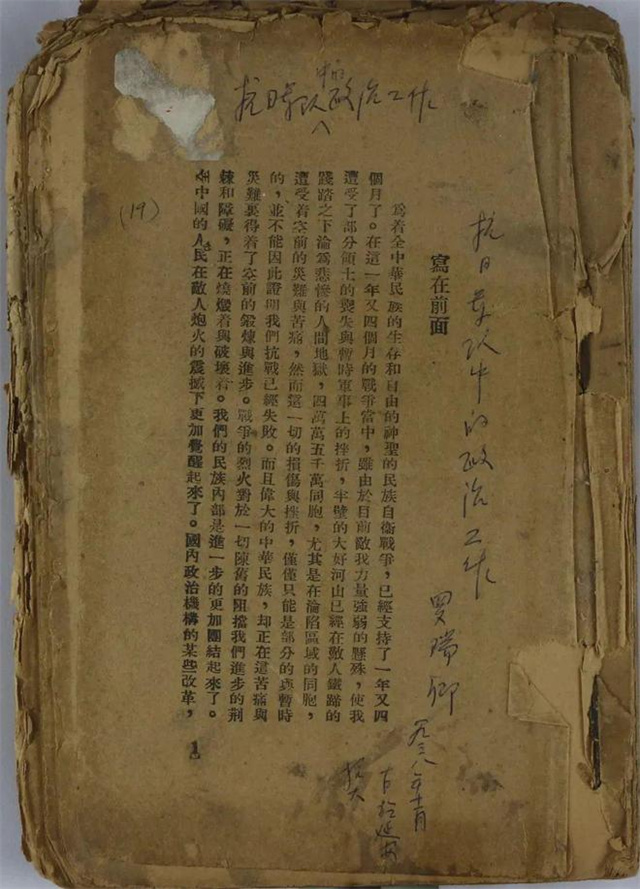 抗日军队中的政治工作
抗日军队中的政治工作
罗瑞卿
一九三八年十一月
延安
抗大
寫在前面
爲着全中華民族的生存和自由的神聖的民族自衛戰爭，已經支持了一年又四
個月了。在這一年又四個月的戰爭當中，雖由於目前敵我力量強弱的懸殊，使我
遭受了部分領土的喪失與暫時軍事上的挫折，半壁的大好河山已經在敵人鐵蹄的
踐踏之下淪爲悲慘的人間地獄，四萬萬五千萬同胞，尤其是在淪陷區域的同胞，
遭受着空前的災難與苦痛，然而這一切的損傷與挫折，僅僅只能是部分的與暫時
的，並不能因此證明我們抗戰已經失敗。而且偉大的中華民族，却正在這苦痛與
災難裏得着了空前的鍛煉與進步。戰爭的烈火對於一切陳舊的阻擋我們進步的荆
棘和障礙，正在燒燬着與破壞着。我們的民族內部是進一步的更加團結起來了。
中國的人民在敵人炮火的震撼下更加覺醒起來了。國內政治機構的某些改革，
1
(19)